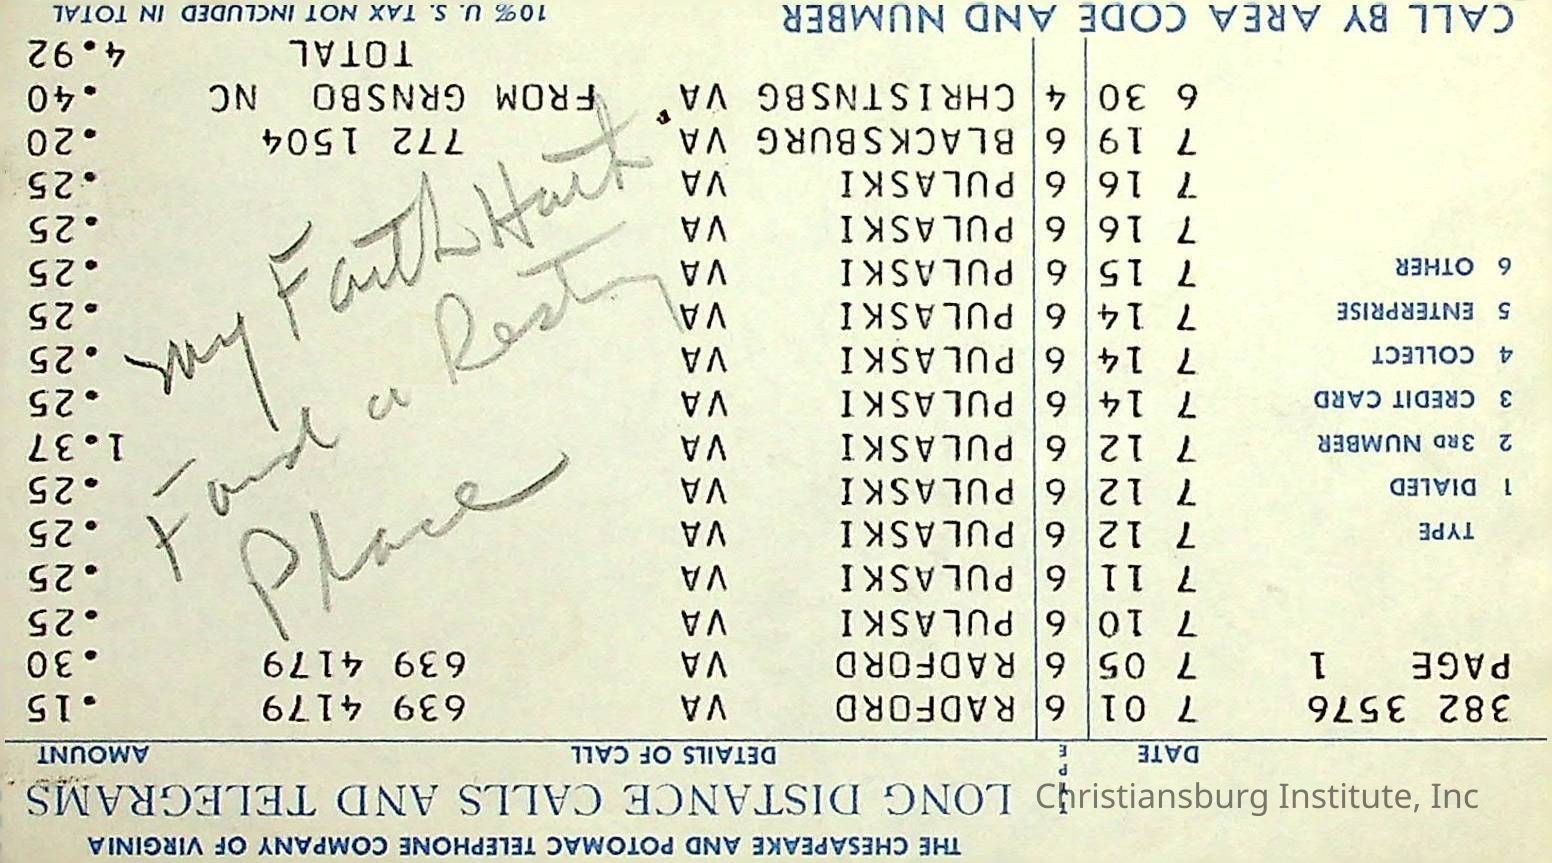 THE CHESAPEAKE AND POTOMAC TELEPHONE COMPANY OF VIRGINIA
LONG DISTANCE CALLS AND TELEGRAMS
DATE TYPE DETAILS OF CALL AMOUNT
382 3576 7 01 6 RADFORD VA 639 4179 .15
PAGE 1 7 05 6 RADFORD VA 639 4179 .30
7 10 6 PULASKI VA .25
7 11 6 PULASKI VA .25
TYPE 7 12 6 PULASKI VA .25
1 DIALED 7 12 6 PULASKI VA .25
2 3RD NUMBER 7 12 6 PULASKI VA 1.37
3 CREDIT CARD 7 14 6 PULASKI VA .25
4 COLLECT 7 14 6 PULASKI VA .25
5 ENTERPRISE 7 14 6 PULASKI VA .25
6 OTHER 7 15 6 PULASKI VA .25
7 16 6 PULASKI VA .25
7 16 6 PULASKI VA .25
7 19 6 BLACKSBURG VA 772 1504 .20
6 30 4 CHRISTNSBG VA FROM GRNSBO NC .40
TOTAL 4.92
CALL BY AREA CODE AND NUMBER 10% U.S. TAX NOT INCLUDED IN TOTAL
my Faith Hath
Found a Resting
Place
Christiansburg Institute, Inc